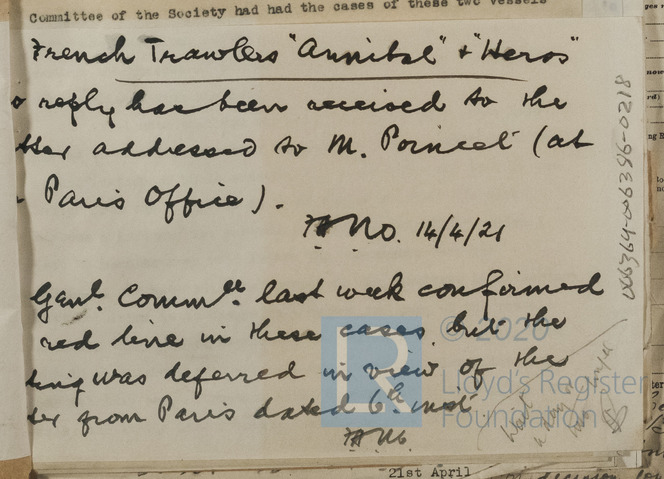 Committee of the Society had had the cases of these two vessels
French Trawlers "Annibal" & "Heros"
o reply has been received to the
tter addressed to M. Poincet (at
Paris Office).
14/4/21
Genl. Commee last week confirmed
red line in these cases, but the
ting was deferred in view of the
ter from Paris dated 6th inst
21st April
006364-006396-0218
© 2020
LR
Lloyd's Register
Foundation